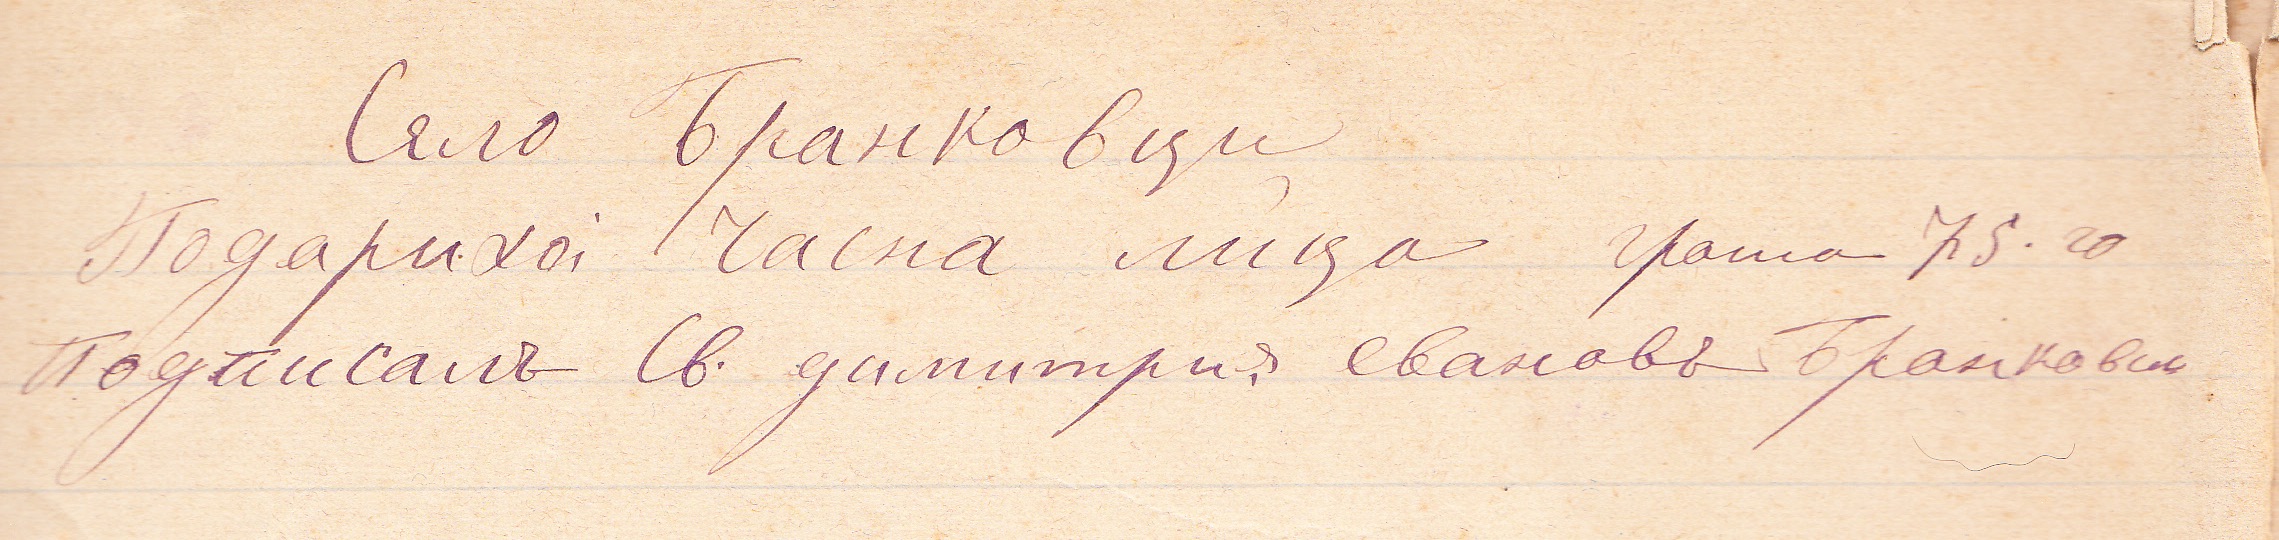 Село Бранковци
Подариха часна лица гроша 75. го
Подписалъ Св. димитрия Евановъ Бранковци